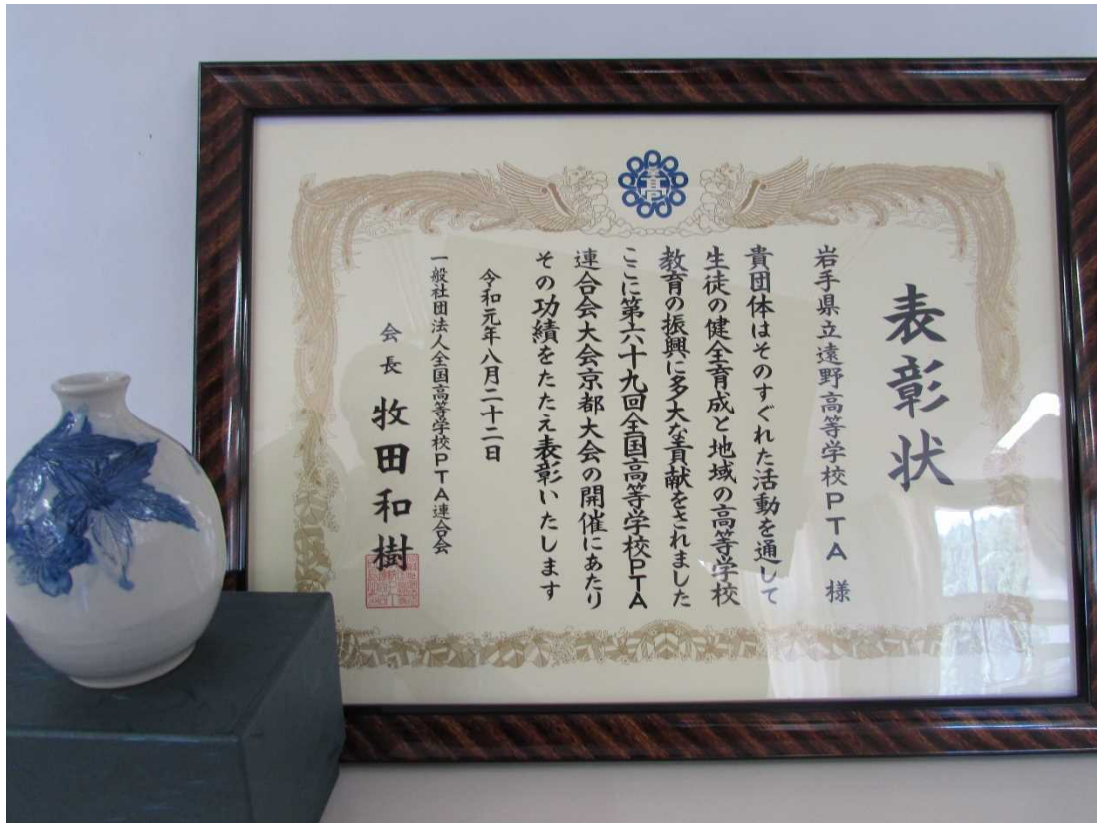 全高P
表彰状
岩手県立遠野高等学校PTA 様
貴団体はそのすぐれた活動を通して
生徒の健全育成と地域の高等学校
教育の振興に多大な貢献をされました
ここに第六十九回全国高等学校PTA
連合会大会京都大会の開催にあたり
その功績をたたえ表彰いたします
令和元年八月二十二日
一般社団法人全国高等学校PTA連合会
会長 牧田和樹